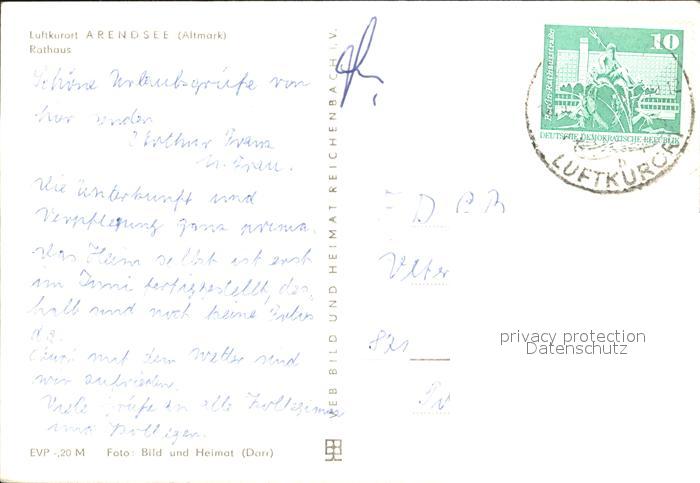 Luftkurort ARENDSEE (Altmark)
Rathaus
Schöne Urlaubsgrüße von
hier senden
Lothar Franz
u. Frau.
Die Unterkunft und
Verpflegung ganz prima.
Das Heim selbst ist erst
im Juni fertiggestellt, des
halb sind noch keine
da.
Auch mit dem Wetter sind
wir zufrieden.
Viele Grüße an alle Kolleginnen
und Kollegen.
EVP -,20 M Foto: Bild und Heimat (Darr)
VEB BILD UND HEIMAT REICHENBACH I.V.
10
Berlin-Rathausstraße
DEUTSCHE DEMOKRATISCHE REPUBLIK
LUFTKURORT
privacy protection
Datenschutz